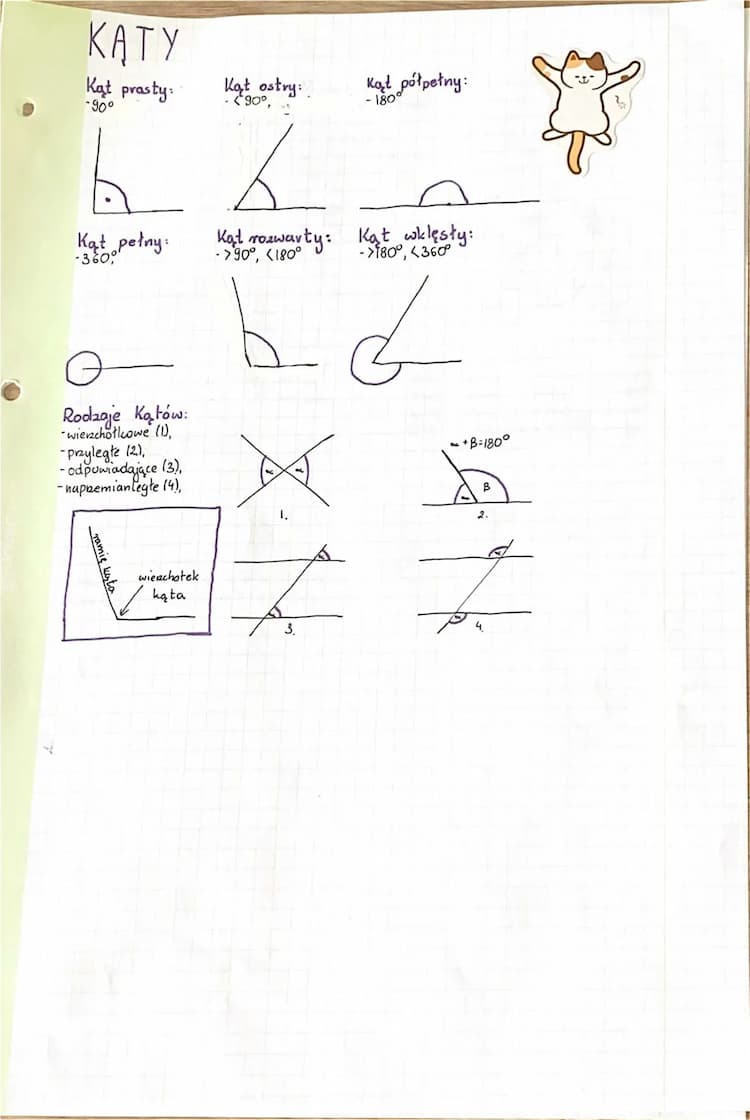 KĄTY
Kąt prosty:
-90°
Kąt ostry:
-<90°,
Kąt półpełny:
-180°
Kąt pełny:
-360°,
Kąt rozwarty:
->90°, <180°
Kąt wklęsły:
->180°, <360°
Rodzaje Kątów:
-wierzchołkowe (1),
-przyległe (2),
-odpowiadające (3),
-naprzemianległe (4),
1.
+B=180°
B
2.
ramię kąta
wierzchołek
kąta
3.
4.